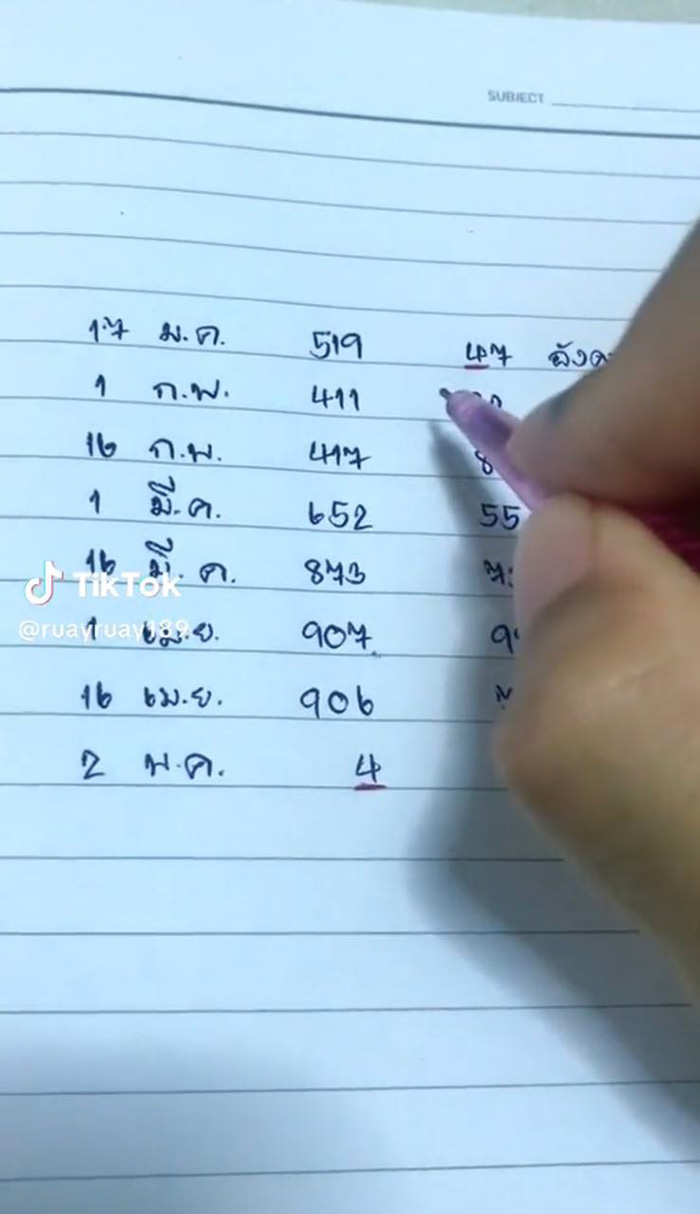 SUBJECT
17 ม.ค. 519 47 อังคา
1 ก.พ. 411
16 ก.พ. 417 8
1 มี.ค. 652 55
16 มี.ค. 873 7
TikTok
@ruayruay189
1 เม.ย. 907 9
16 เม.ย. 906
2 พ.ค. 4